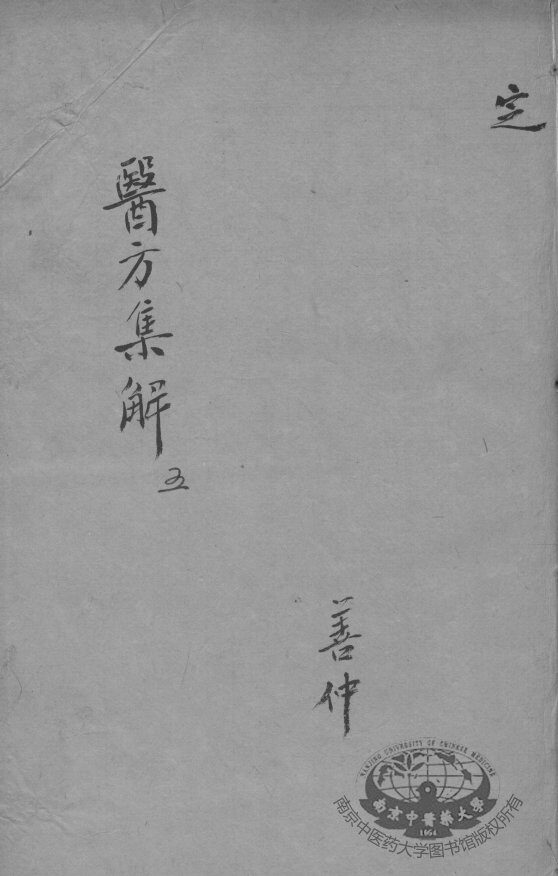 定
醫方集解
五
善仲
NANJING UNIVERSITY OF CHINESE MEDICINE
南京中醫藥大學
1954
南京中医药大学图书馆版权所有